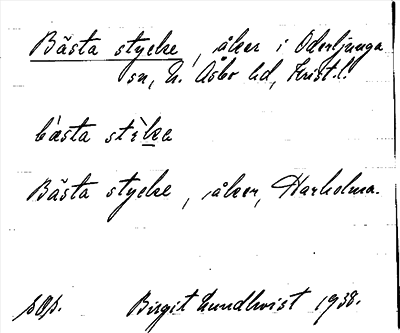 Bästa stycke, åker i Oderljunga
sn, N. Åsbo hd, Krist. l.
bästa stikə
Bästa stycke, åker, Harholma.
sOp. Birgit Lundkvist 1938.